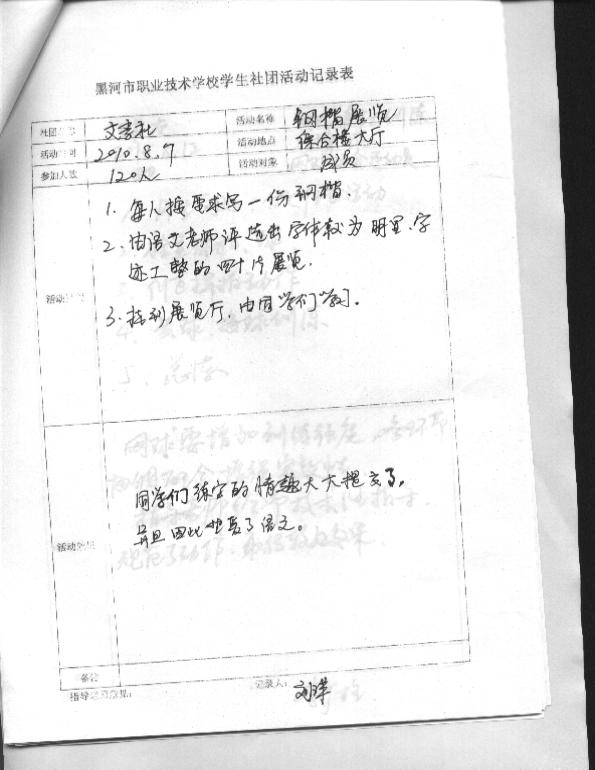 黑河市职业技术学校学生社团活动记录表
社团名称 文学社 活动名称 钢楷展览
活动时间 2010.8.7 活动地点 综合楼大厅
参加人数 120人 活动对象 成员
1. 每人按要求写一份钢楷.
2. 由语文老师评选出字体较为明显、字
迹工整的四十片展览.
活动
3. 挂到展览厅, 由同学们学习.
同学们练字的情趣大大提高了,
并且因此也爱了语文。
活动效果
备注
指导 意见: 记录人: 刘洋